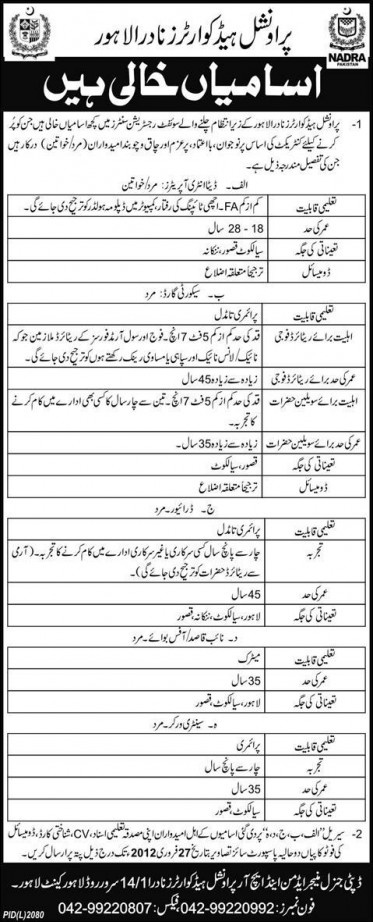 پراونشل ہیڈ کوارٹرز نادرا لاہور
NADRA
PAKISTAN
اسامیاں خالی ہیں
1- پراونشل ہیڈ کوارٹرز نادرا لاہور کے زیر انتظام چلنے والے سوئفٹ رجسٹریشن سنٹرز میں کچھ اسامیاں خالی ہیں جن کو پُر
کرنے کیلئے کنٹریکٹ کی اساس پر نوجوان، با اعتماد، پرعزم اور چاق و چوبند امیدواران (مرد/خواتین) درکار ہیں
جن کی تفصیل مندرجہ ذیل ہے۔
الف۔ ڈیٹا انٹری آپریٹرز: مرد/خواتین
تعلیمی قابلیت کم از کم FA۔ اچھی ٹائپنگ کی رفتار، کمپیوٹر میں ڈپلومہ ہولڈر کو ترجیح دی جائے گی۔
عمر کی حد 18 - 28 سال
تعیناتی کی جگہ سیالکوٹ، قصور، ننکانہ
ڈومیسائل ترجیحاً متعلقہ اضلاع
ب۔ سیکورٹی گارڈ: مرد
تعلیمی قابلیت پرائمری تا مڈل
اہلیت برائے ریٹائرڈ فوجی قد کی حد کم از کم 5 فٹ 7 انچ۔ فوج اور سول آرمڈ فورسز کے ریٹائرڈ ملازمین جو کہ
نائیک/لانس نائیک اور سپاہی یا مساوی رینک رکھتے ہوں کو ترجیح دی جائے گی۔
عمر کی حد برائے ریٹائرڈ فوجی زیادہ سے زیادہ 45 سال
اہلیت برائے سویلین حضرات قد کی حد کم از کم 5 فٹ 7 انچ۔ تین سے چار سال کا کسی بھی ادارے میں کام کرنے کا
تجربہ۔
عمر کی حد برائے سویلین حضرات زیادہ سے زیادہ 35 سال۔
تعیناتی کی جگہ قصور، سیالکوٹ
ڈومیسائل ترجیحاً متعلقہ اضلاع
ج۔ ڈرائیور۔ مرد
تعلیمی قابلیت پرائمری تا مڈل
تجربہ چار سے پانچ سال کسی سرکاری یا غیر سرکاری ادارے میں کام کرنے کا تجربہ۔ (آرمی
سے ریٹائرڈ حضرات کو ترجیح دی جائے گی)۔
عمر کی حد 45 سال
تعیناتی کی جگہ لاہور، سیالکوٹ، ننکانہ، قصور
د۔ نائب قاصد/آفس بوائے۔ مرد
تعلیمی قابلیت میٹرک
عمر کی حد 35 سال
تعیناتی کی جگہ لاہور، سیالکوٹ، قصور
ہ۔ سینٹری ورکر۔ مرد
تعلیمی قابلیت پرائمری
تجربہ چار سے پانچ سال
عمر کی حد 35 سال
تعیناتی کی جگہ سیالکوٹ، قصور
2- سیریل "الف، ب، ج، د، ہ" پر دی گئی اسامیوں کے اہل امیدواران اپنی مصدقہ تعلیمی اسناد، CV، شناختی کارڈ، ڈومیسائل
کی فوٹو کاپیاں دو حالیہ پاسپورٹ سائز تصاویر بتاریخ 27 فروری 2012 تک درج ذیل پتہ پر ارسال کریں۔
ڈپٹی جنرل منیجر ایڈمن اینڈ ایچ آر پراونشل ہیڈ کوارٹرز نادرا 14/1 سرور روڈ لاہور کینٹ لاہور
فون نمبرز: 042-99220992 فیکس: 042-99220807
PID(L)2080